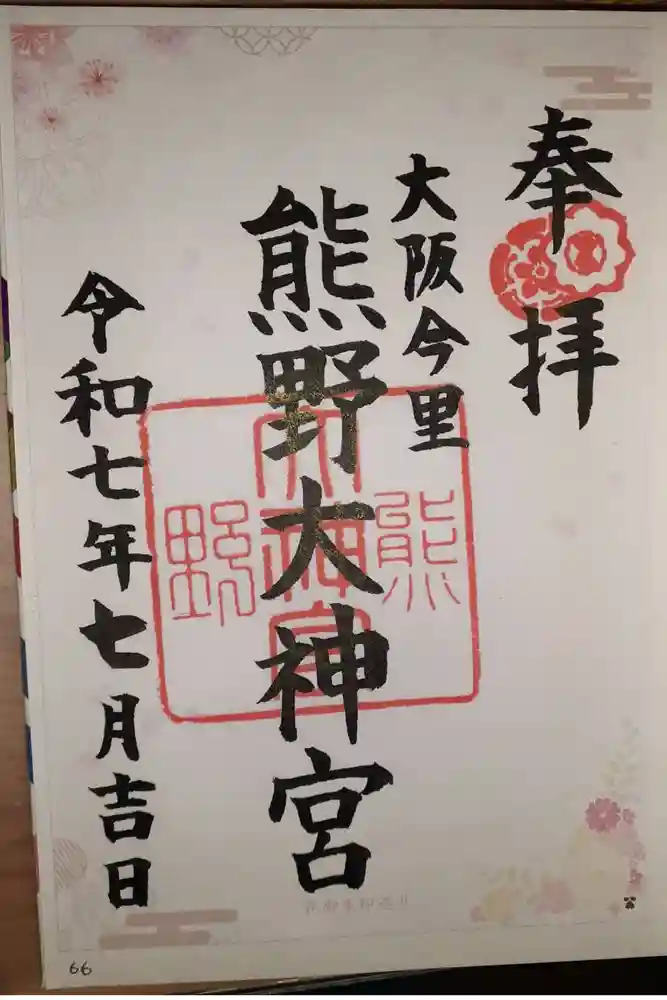 奉拝
大阪今里
熊野大神宮
令和七年七月吉日
熊野大神宮
花御朱印巡り
66